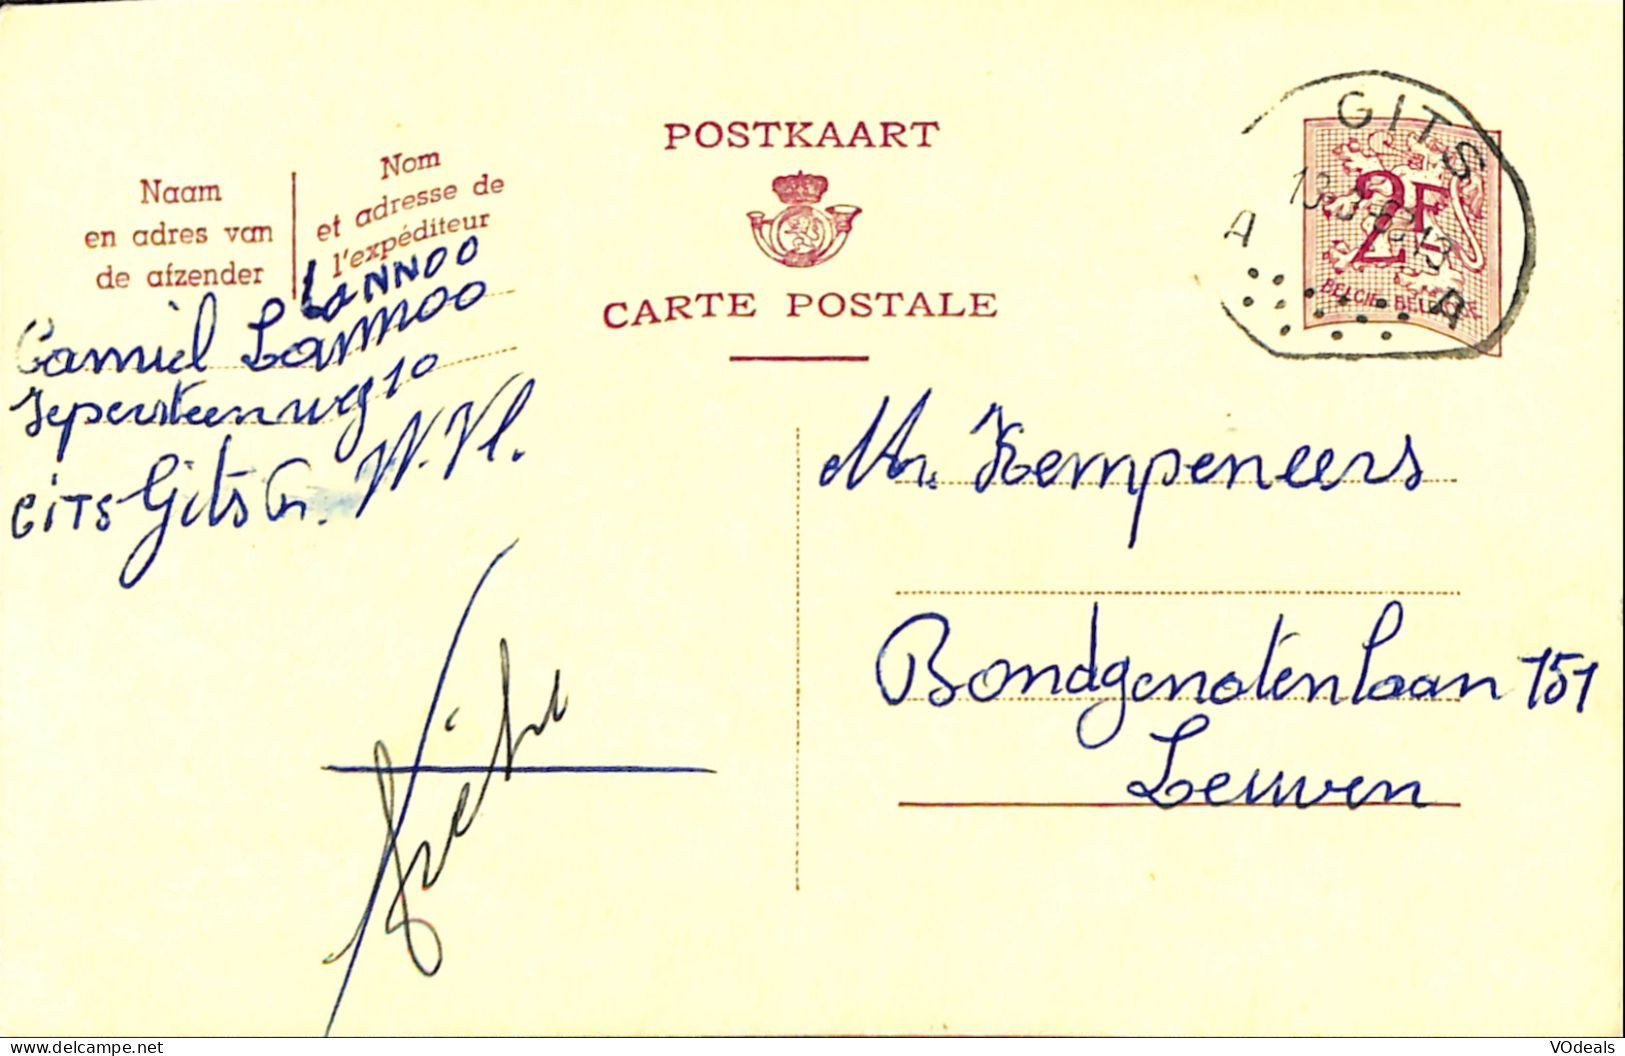 POSTKAART
CARTE POSTALE
Naam
en adres van
de afzender
Nom
et adresse de
l'expéditeur
LaNNOO
Camiel Lannoo
Iepersteenweg 10
GiTS Gits W. Vl.
GITS
13-3-6 -13
A A
2F
BELGIE-BELGIQUE
Mr. Kempeneers
Bondgenotenlaan 151
Leuven
VOdeals